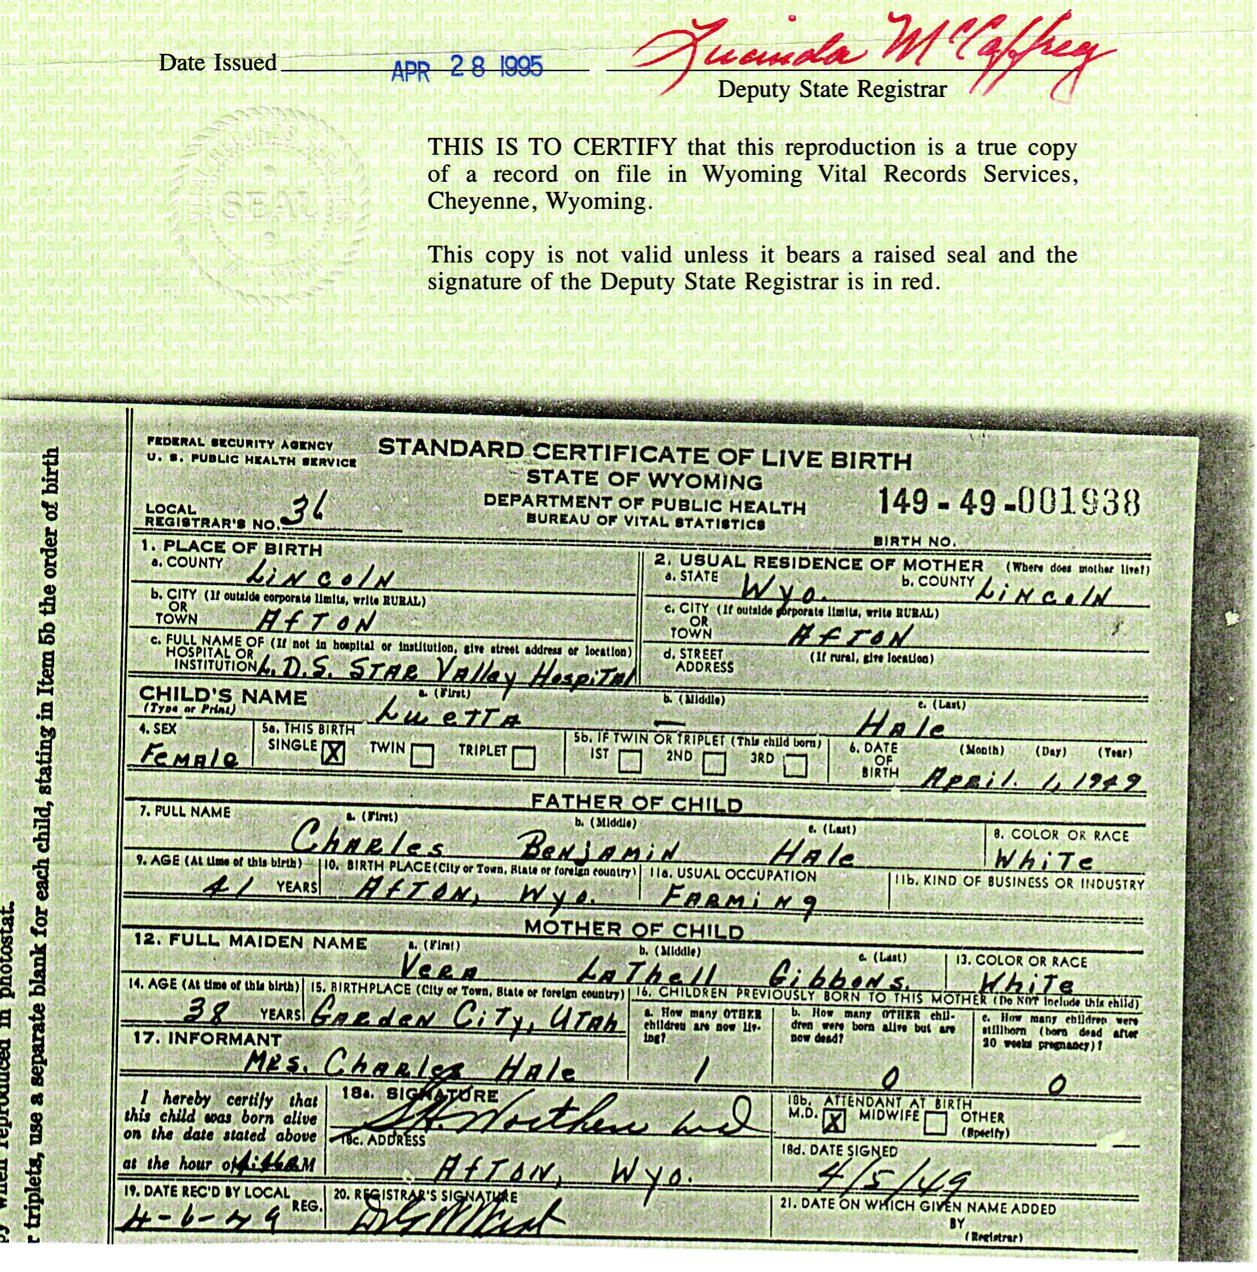 Date Issued APR 28 1995 Lucinda McCaffrey
Deputy State Registrar
THIS IS TO CERTIFY that this reproduction is a true copy
of a record on file in Wyoming Vital Records Services,
Cheyenne, Wyoming.
This copy is not valid unless it bears a raised seal and the
signature of the Deputy State Registrar is in red.
SEAL
FEDERAL SECURITY AGENCY
U. S. PUBLIC HEALTH SERVICE
STANDARD CERTIFICATE OF LIVE BIRTH
STATE OF WYOMING
DEPARTMENT OF PUBLIC HEALTH
BUREAU OF VITAL STATISTICS
149 - 49 - 001938
BIRTH NO.
LOCAL
REGISTRAR'S NO. 36
1. PLACE OF BIRTH
a. COUNTY Lincoln
b. CITY (If outside corporate limits, write RURAL)
OR
TOWN Afton
c. FULL NAME OF (If not in hospital or institution, give street address or location)
HOSPITAL OR
INSTITUTION L.D.S. Star Valley Hospital
2. USUAL RESIDENCE OF MOTHER (Where does mother live?)
a. STATE Wyo. b. COUNTY Lincoln
c. CITY (If outside corporate limits, write RURAL)
OR
TOWN Afton
d. STREET (If rural, give location)
ADDRESS
CHILD'S NAME a. (First) b. (Middle) c. (Last)
(Type or Print) Luetta — Hale
4. SEX
Female
5a. THIS BIRTH
SINGLE X TWIN TRIPLET
5b. IF TWIN OR TRIPLET (This child born)
1ST 2ND 3RD
6. DATE (Month) (Day) (Year)
OF
BIRTH April. 1, 1949
FATHER OF CHILD
7. FULL NAME a. (First) b. (Middle) c. (Last)
Charles Benjamin Hale
8. COLOR OR RACE
White
9. AGE (At time of this birth)
41 YEARS
10. BIRTH PLACE (City or Town, State or foreign country)
Afton, Wyo.
11a. USUAL OCCUPATION
Farming
11b. KIND OF BUSINESS OR INDUSTRY
MOTHER OF CHILD
12. FULL MAIDEN NAME a. (First) b. (Middle) c. (Last)
Vera LaThell Gibbons.
13. COLOR OR RACE
White
14. AGE (At time of this birth)
38 YEARS
15. BIRTHPLACE (City or Town, State or foreign country)
Garden City, Utah
16. CHILDREN PREVIOUSLY BORN TO THIS MOTHER (Do NOT include this child)
a. How many OTHER
children are now liv-
ing?
1
b. How many OTHER chil-
dren were born alive but are
now dead?
0
c. How many children were
stillborn (born dead after
20 weeks pregnancy)?
0
17. INFORMANT
Mrs. Charles Hale
I hereby certify that
this child was born alive
on the date stated above
at the hour of M
18a. SIGNATURE
18b. ATTENDANT AT BIRTH
M.D. X MIDWIFE OTHER
(Specify)
18c. ADDRESS
Afton, Wyo.
18d. DATE SIGNED
4/5/49
19. DATE REC'D BY LOCAL REG.
4-6-49
20. REGISTRAR'S SIGNATURE
21. DATE ON WHICH GIVEN NAME ADDED
BY
(Registrar)
when reproduced in photostat.
r triplets, use a separate blank for each child, stating in Item 5b the order of birth